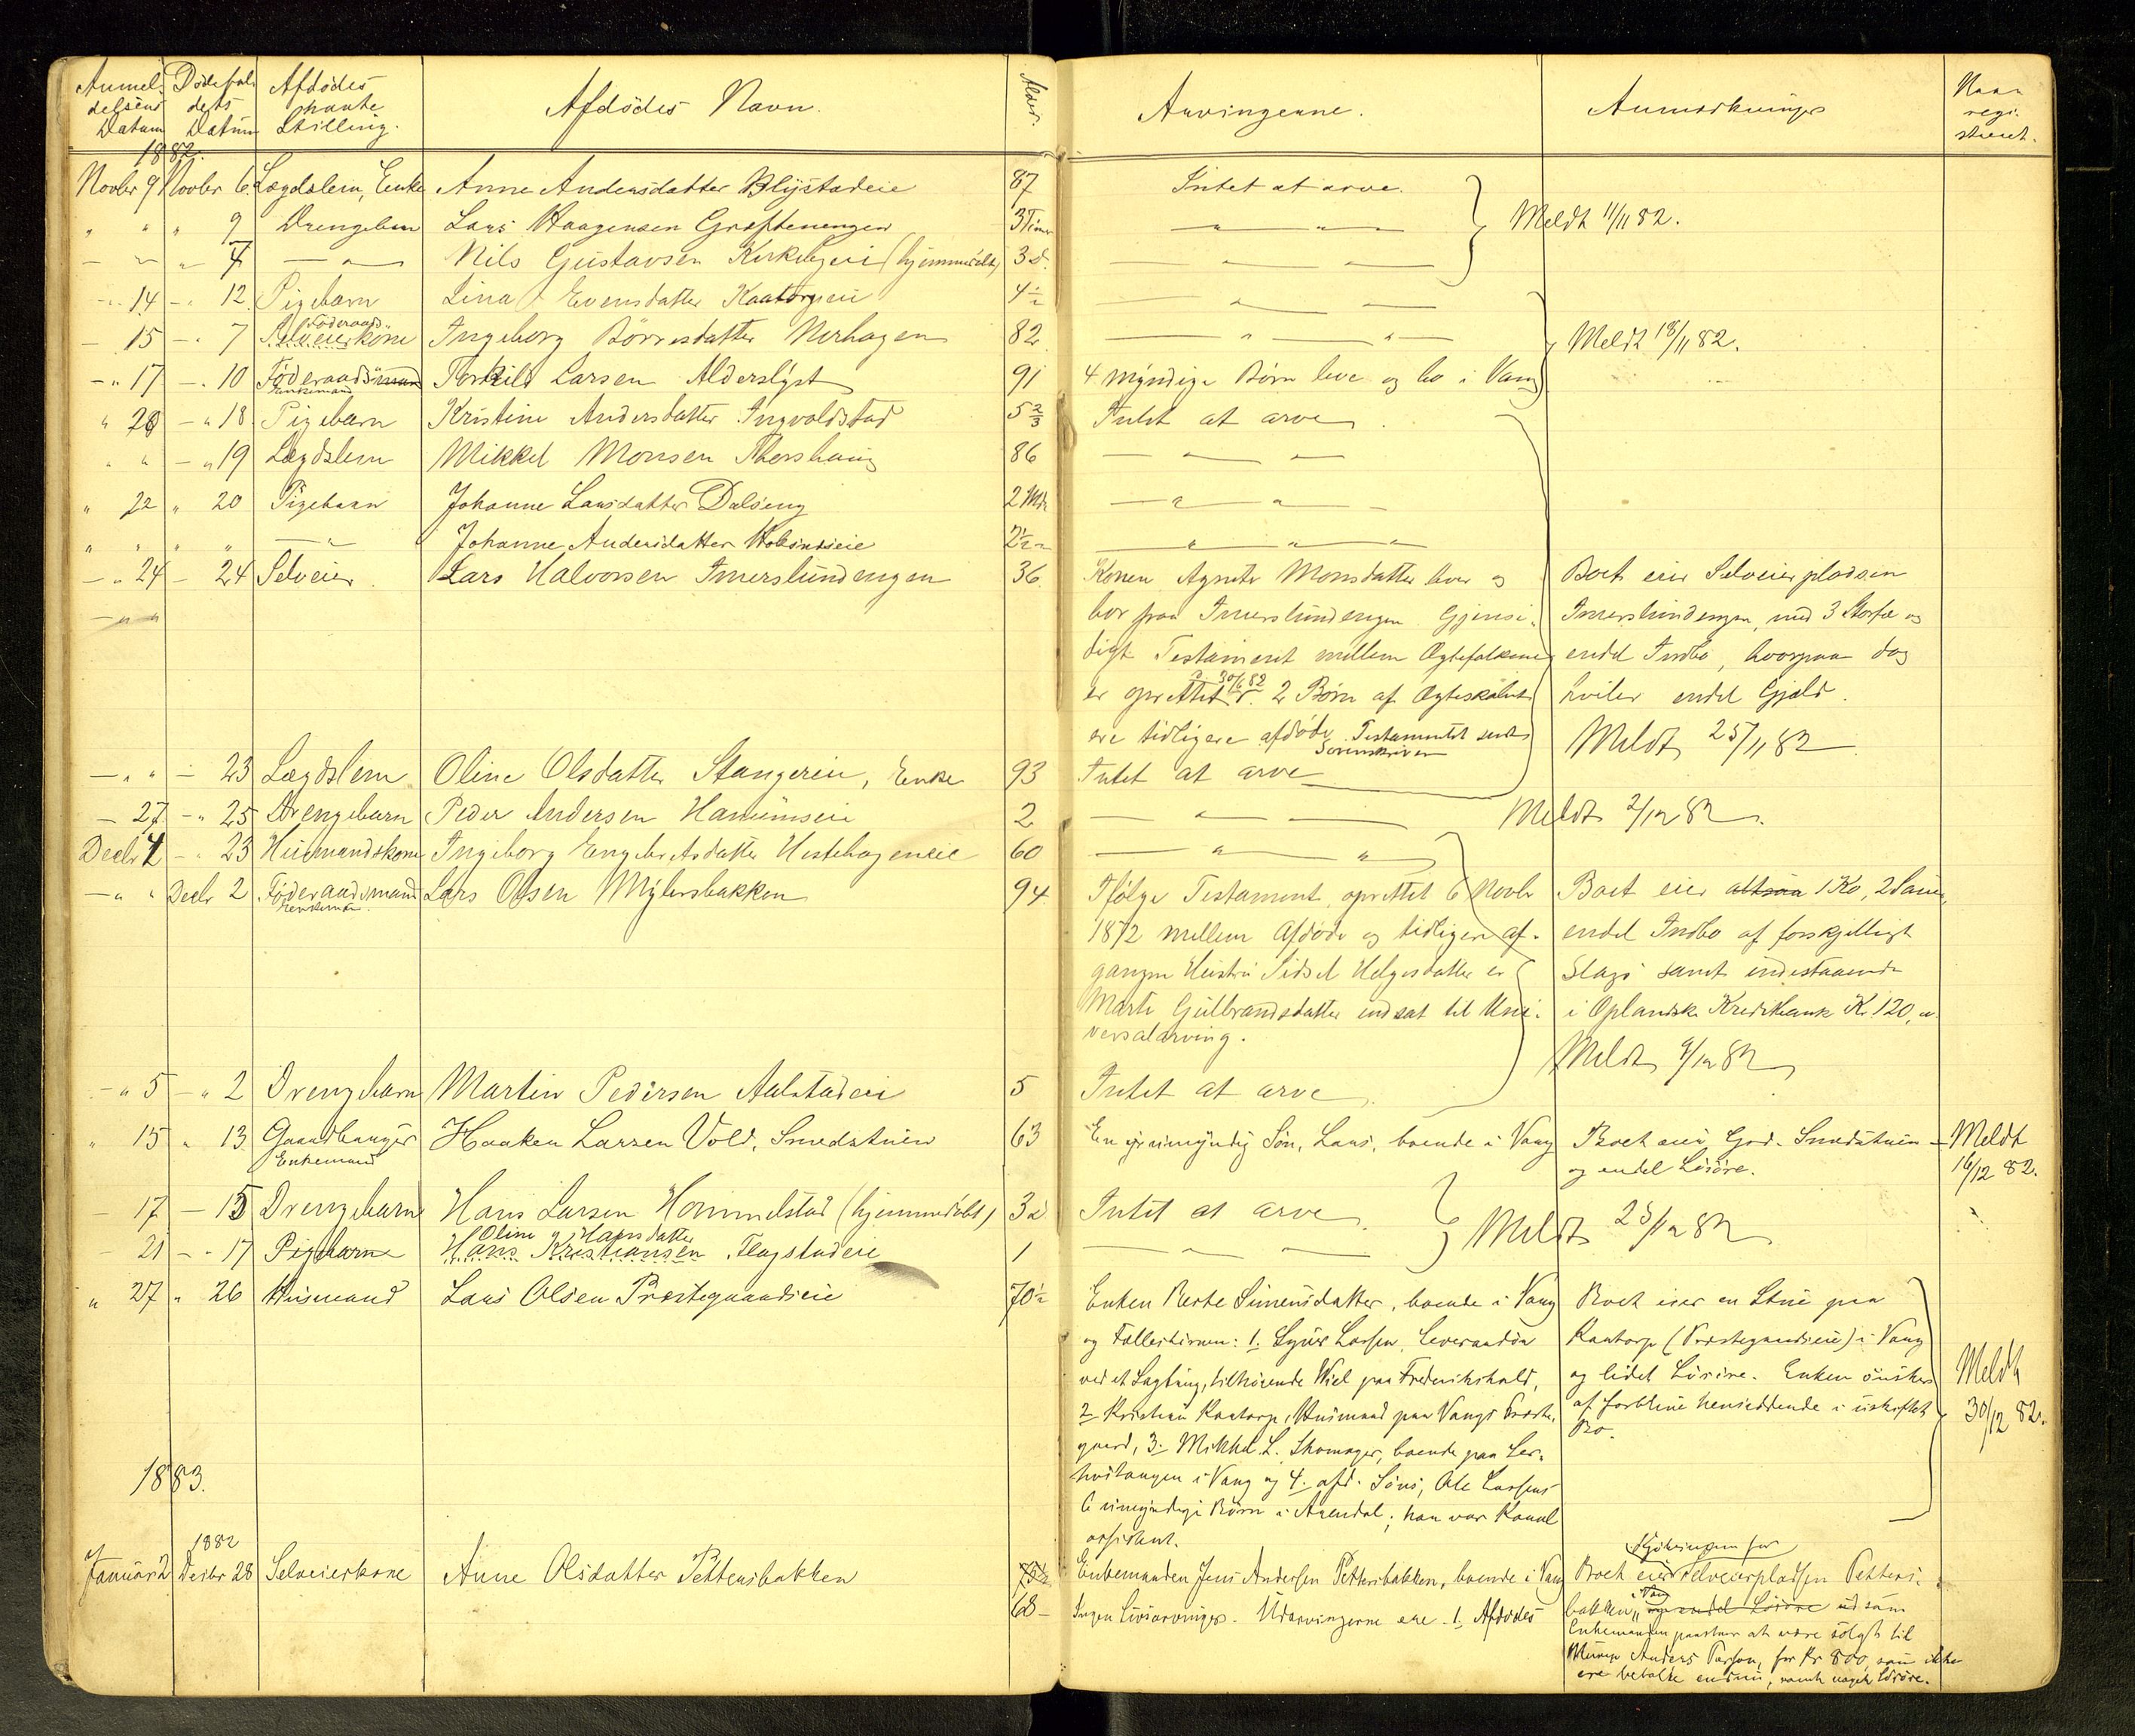 Anmel- Dödsfal- Afdödes
delsens dets
Datum Datum Stilling.
Afdödes Navn.
Alder.
Arvingerne.
Anmærkninger
Naar
regi-
streret.
1882.
Novbr 9 Novbr 6. Lægdslem, Enke Anne Andersdatter Blystadeie 87 Intet at arve.
" " " 9 Drengebarn Lars Haagensen Grøftenengen 3 Timer — " — " — Meldt 11/11 82.
— " — " 7 — " — Nils Gustavsen (hjemmedöbt) 3 d. — " — " —
— " 14 — " 12 Pigebarn Lina Evensdatter Kaatorpeie 4 1/2 — " — " —
— 15 — " 7 Föderaads-
kone Ingeborg Börresdatter Nerhagen 82 — " — " — Meldt 18/11 82.
— " 17 — " 10 Föderaadsmand Torkild Larsen Alderslyst 91 4 myndige Börn leve og bo i Vang
Enkemand
" 20 — " 18 Pigebarn Kristine Andersdatter Ingvoldstad 5 2/3 Intet at arve.
" " — " 19 Lægdslem Mikkel Monsen Thorshaug 86 — " —
" 22 " 20 Pigebarn Johanne Larsdatter Dalseng 2 Mdr — " — " —
" " " " — " — Johanne Andersdatter 2 1/2 — " — " —
— " 24 — 24 Selveier Lars Halvorsen Imerslundengen 36 Konen Agnete Monsdatter lever og Boet eier Selveierpladsen
— " "
bor paa Imerslundengen. Gjensi- Imerslundengen, med 3 Storfæ og
digt Testament mellem Ægtefolkene endel Indbo, hvorpaa dog
er oprettet d. 30/6 82. 2 Börn af Ægteskabet hviler endel Gjæld.
ere tidligere afdöde. Testamentet sendt Meldt 25/11 82
Sorenskriveren
— " " — 23 Lægdslem Oline Olsdatter Stangereie, Enke 93 Intet at arve
— 27 — " 25 Drengebarn Peder Andersen Hanumseie 2 — " — Meldt 2/12 82.
Decbr 4 — " 23 Husmandskone Ingeborg Engebretsdatter Hestehageneie 60 — " — " —
— " " Decbr 2 Föderaadsmand Lars Olsen Mylersbakken 94 Ifölge Testament, oprettet 6 Novbr Boet eier altsaa 1 Ko, 2 Sauer,
Enkemand.
1872 mellem Afdöde og tidligere af- endel Indbo af forskjelligt
gangne Hustru Sidsel Helgesdatter er Slags samt indestaaende
Marte Gulbrandsdatter indsat til Uni- i Oplandske Kreditbank Kr. 120,
versalarving.
Meldt 9/12 82
— " 5 — " 2 Drengebarn Martin Pedersen Aalstadeie 5 Intet at arve
" 15 " 13 Gaardbruger Haaken Larsen Vold, Smedstuen 63 En umyndig Sön, Lars, boende i Vang Boet eier Grd. Smedstuen — Meldt
Enkemand og endel Lösöre. 16/12 82.
— 17 — 15 Drengebarn Hans Larsen Hommelstad (hjemmedöbt) 3 d Intet at arve. Meldt 23/12 82
Oline Hansdatter
— 21 — " 17 Pigebarn Hans Kristiansen Flagstadeie 1 — " — " —
" 27 " 26 Husmand Lars Olsen Præstegaardseie 70 1/2 Enken Berte Simensdatter, boende i Vang Boet eier en Stue paa
og Fællesbörn: 1. Syver Larsen, Leverandör Kaatorp (Præstegaardseie) i Vang
ved et Sagbrug, tilhörende Wiel paa Frederikshald, og lidet Lösöre. Enken önsker
2. Kristian Kaatorp, Husmand paa Vangs Præste- at forblive hensiddende i uskiftet
Bo.
Meldt
30/12 82.
gaard, 3. Mikkel L. Skomager, boende paa Ler-
i Vang og 4. afd. Söns, Ole Larsens
6 umyndige Börn i Arendal; han var Kanal
assistent.
1883.
1882
Januar 2 Decbr 28 Selveierkone Anne Olsdatter Pettersbakken 68 Enkemanden Jens Andersen Pettersbakken, boende i Vang Boet eier Selveierpladsen Petters-
Ingen Livsarvinger. Udarvingerne ere 1. Afdödes bakken, i Vang og endel Lösöre
Enkemanden paastaar at være solgt til
Anders for Kr 800, som ikke
ere betalte endnu, samt noget Lösöre.